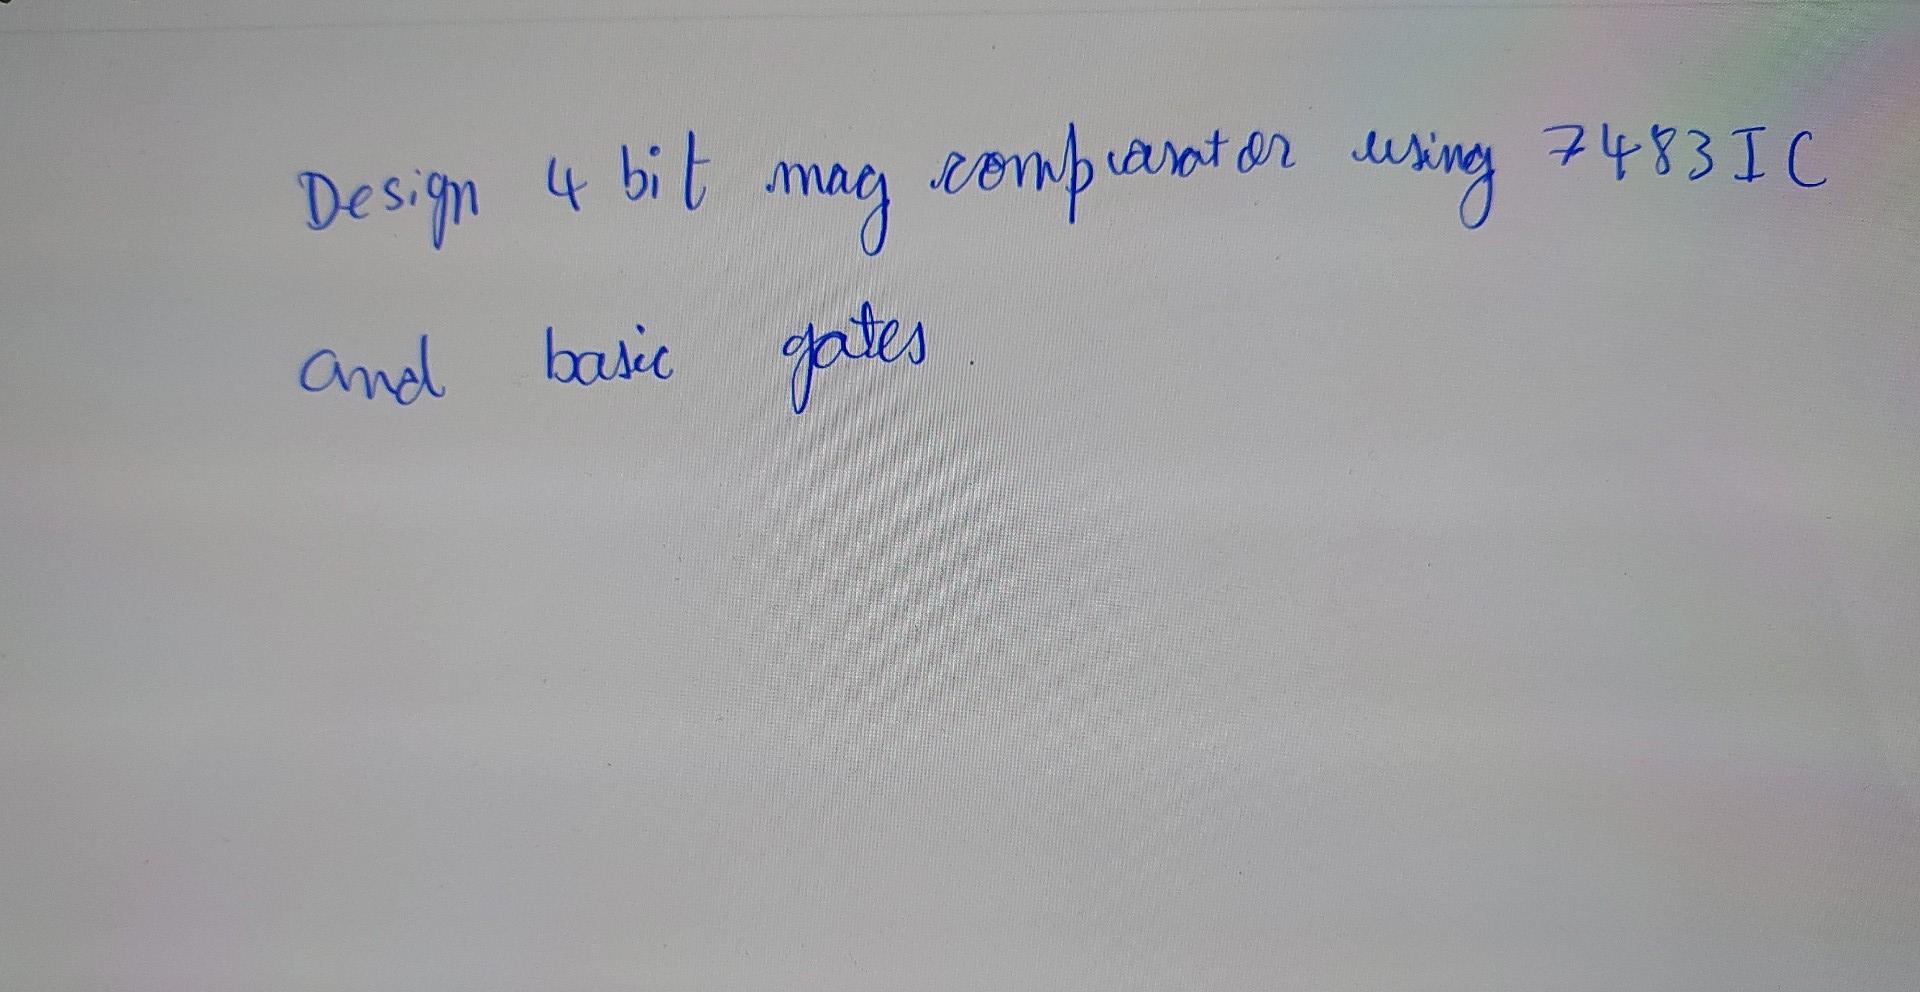 Design 4 bit mag comparator using 7483 IC
and basic gates.